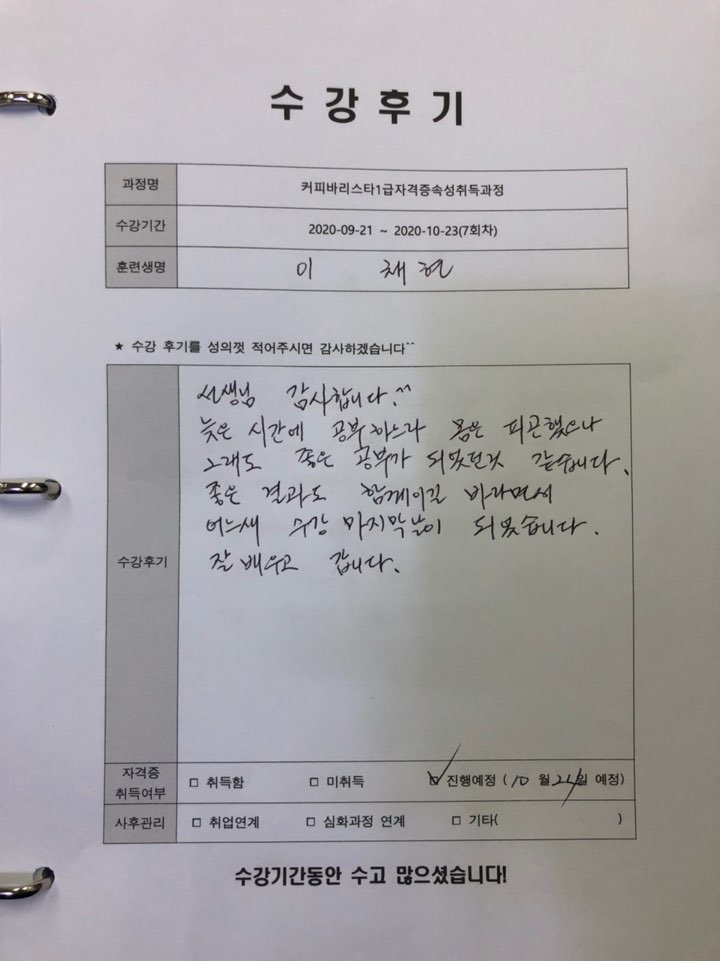 수강후기
과정명 커피바리스타1급자격증속성취득과정
수강기간 2020-09-21 ~ 2020-10-23(7회차)
훈련생명 이 채현
★ 수강 후기를 성의껏 적어주시면 감사하겠습니다^^
수강후기
선생님 감사합니다.^^
늦은 시간에 공부하느라 몸은 피곤했으나
그래도 좋은 공부가 되었던것 같습니다.
좋은 결과도 함께이길 바라면서
어느새 수강 마지막날이 되었습니다.
잘 배우고 갑니다.
자격증 취득여부 □ 취득함 □ 미취득 ☑ 진행예정 (10 월 24일 예정)
사후관리 □ 취업연계 □ 심화과정 연계 □ 기타( )
수강기간동안 수고 많으셨습니다!